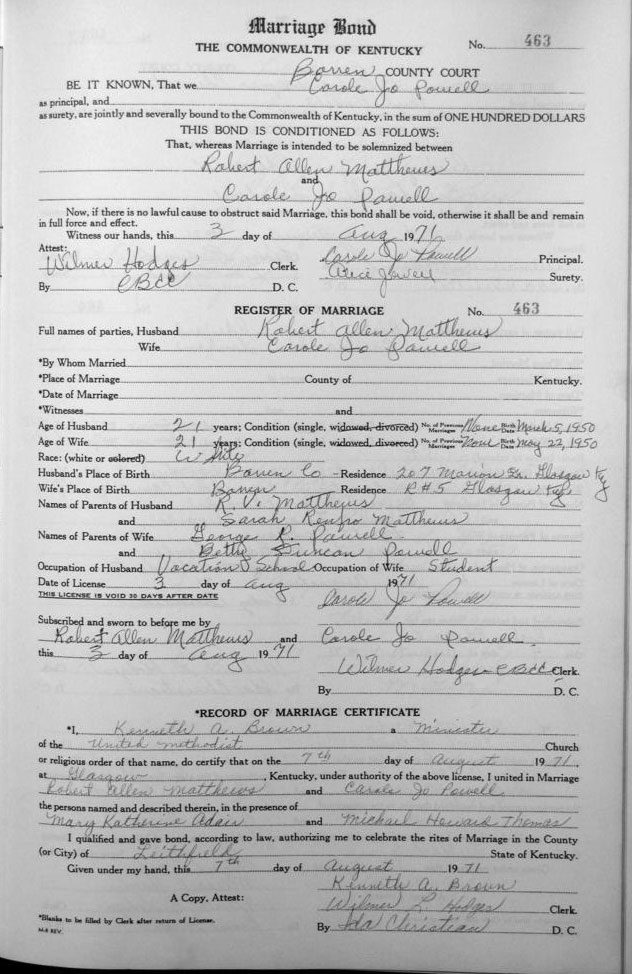 Marriage Bond
THE COMMONWEALTH OF KENTUCKY No. 463
Barren COUNTY COURT
BE IT KNOWN, That we Carole Jo Powell
as principal, and
as surety, are jointly and severally bound to the Commonwealth of Kentucky, in the sum of ONE HUNDRED DOLLARS
THIS BOND IS CONDITIONED AS FOLLOWS:
That, whereas Marriage is intended to be solemnized between
Robert Allen Matthews
and
Carole Jo Powell
Now, if there is no lawful cause to obstruct said Marriage, this bond shall be void, otherwise it shall be and remain
in full force and effect.
Witness our hands, this 3 day of Aug 1971
Attest: Carole Jo Powell Principal.
Wilmer Hodges Clerk. Surety.
By CBCC D. C.
REGISTER OF MARRIAGE No. 463
Full names of parties, Husband Robert Allen Matthews
Wife Carole Jo Powell
*By Whom Married
*Place of Marriage County of Kentucky.
*Date of Marriage
*Witnesses and
Age of Husband 21 years; Condition (single, widowed, divorced) No. of Previous Marriages None Birth Date March 5, 1950
Age of Wife 21 years; Condition (single, widowed, divorced) No. of Previous Marriages None Birth Date May 22, 1950
Race: (white or colored) White
Husband's Place of Birth Barren Co Residence 207 Marion Dr. Glasgow Ky
Wife's Place of Birth Barren Residence R#5 Glasgow Ky.
Names of Parents of Husband R. V. Matthews
and Sarah Renfro Matthews
Names of Parents of Wife George R. Powell
and Betty Duncan Powell
Occupation of Husband Vocation School Occupation of Wife Student
Date of License 3 day of Aug 1971
THIS LICENSE IS VOID 30 DAYS AFTER DATE Carole Jo Powell
Subscribed and sworn to before me by
Robert Allen Matthews and Carole Jo Powell
this 3 day of Aug 1971
Wilmer Hodges CBCC Clerk.
By D. C.
*RECORD OF MARRIAGE CERTIFICATE
*I, Kenneth A. Brown a Minister
of the United Methodist Church
or religious order of that name, do certify that on the 7th day of August 1971,
at Glasgow, Kentucky, under authority of the above license, I united in Marriage
Robert Allen Matthews and Carole Jo Powell
the persons named and described therein, in the presence of
Mary Katherine Adair and Michael Howard Thomas
I qualified and gave bond, according to law, authorizing me to celebrate the rites of Marriage in the County
(or City) of Leitchfield State of Kentucky.
Given under my hand, this 7th day of August 1971
Kenneth A. Brown
A Copy, Attest: Wilmer L. Hodges Clerk.
*Blanks to be filled by Clerk after return of License.
By Ida Christian D. C.
M-8 REV.